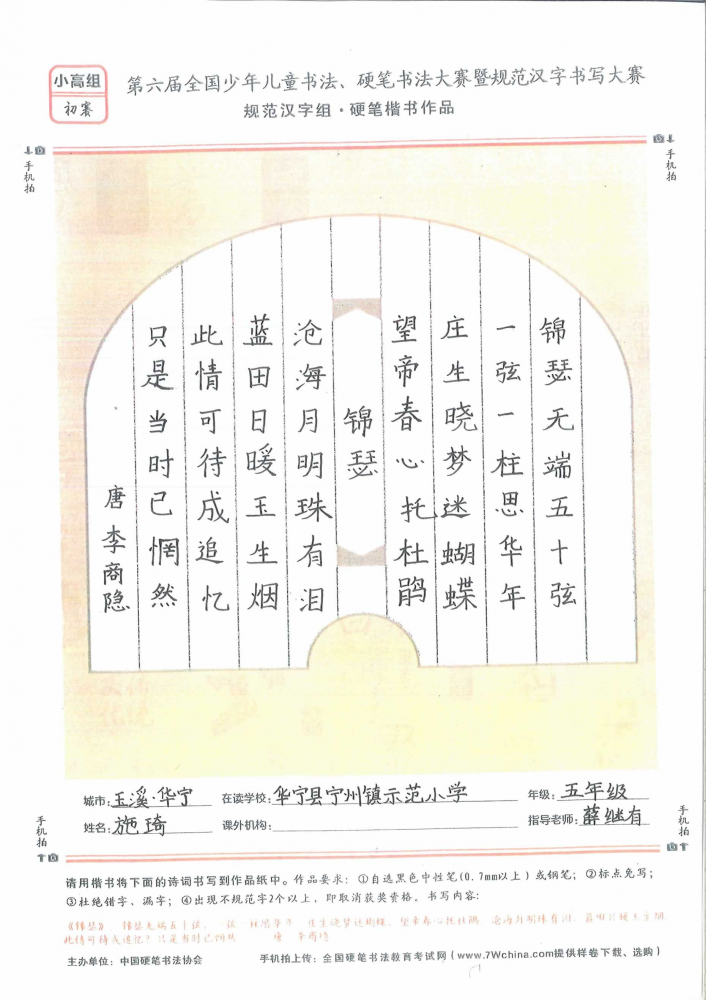 小高组
初赛
第六届全国少年儿童书法、硬笔书法大赛暨规范汉字书写大赛
规范汉字组·硬笔楷书作品
手机拍
手机拍
锦瑟无端五十弦
一弦一柱思华年
庄生晓梦迷蝴蝶
望帝春心托杜鹃
锦瑟
沧海月明珠有泪
蓝田日暖玉生烟
此情可待成追忆
只是当时已惘然
唐 李商隐
城市:玉溪·华宁 在读学校:华宁县宁州镇示范小学 年级:五年级
姓名:施琦 课外机构: 指导老师:薛继有
手机拍
手机拍
请用楷书将下面的诗词书写到作品纸中。作品要求:①自选黑色中性笔(0.7mm以上)或钢笔;②标点免写;
③杜绝错字、漏字;④出现不规范字2个以上,即取消获奖资格。书写内容:
《锦瑟》 锦瑟无端五十弦,一弦一柱思华年。庄生晓梦迷蝴蝶,望帝春心托杜鹃。沧海月明珠有泪,蓝田日暖玉生烟。
此情可待成追忆?只是当时已惘然。 唐 李商隐
主办单位:中国硬笔书法协会 手机拍上传:全国硬笔书法教育考试网(www.7Wchina.com提供样卷下载、选购)